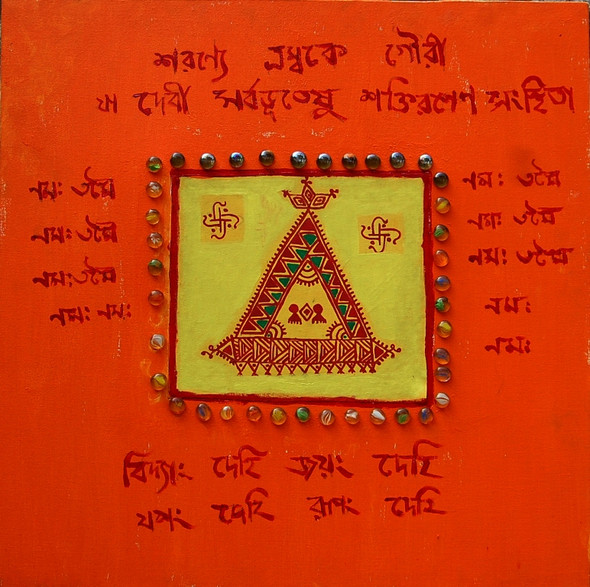 শরণ্যে ত্রম্বকে গৌরী
যা দেবী সর্বভূতেষু শক্তিরূপেণ সংস্থিতা
নমঃ তস্যৈ
নমঃ তস্যৈ
নমঃ তস্যৈ
নমঃ নমঃ
নমঃ তস্যৈ
নমঃ তস্যৈ
নমঃ তস্যৈ
নমঃ
নমঃ
বিদ্যাং দেহি জয়ং দেহি
যশং দেহি রূপং দেহি